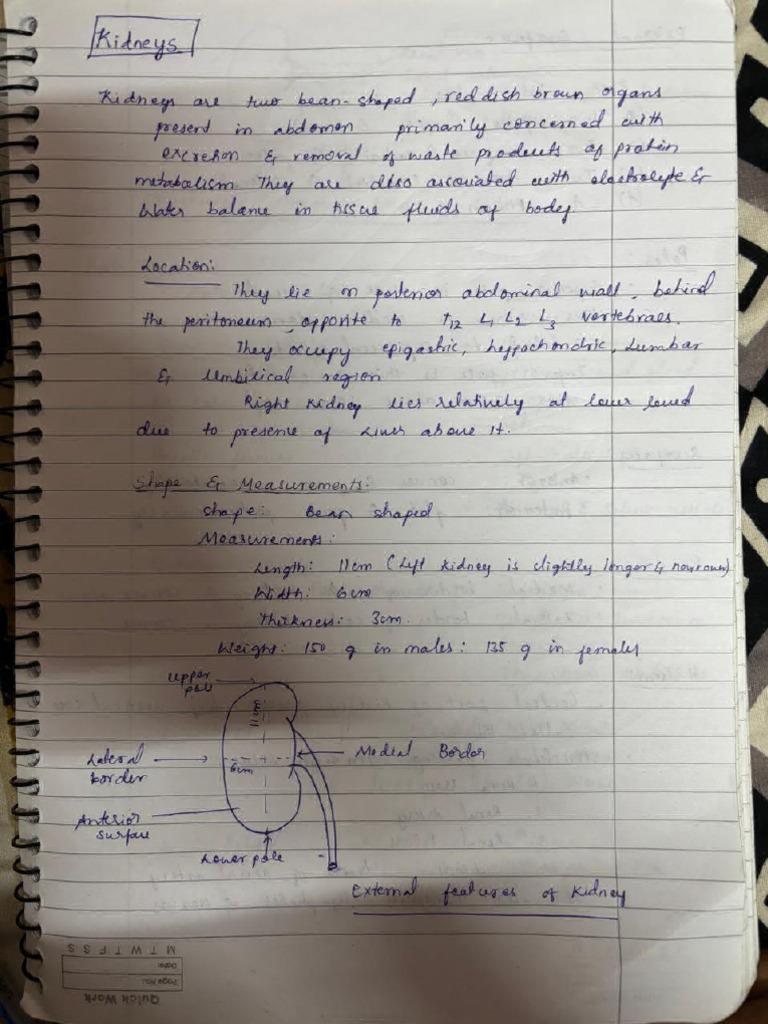 Kidneys
Kidneys are two bean-shaped, reddish brown organs
present in abdomen primarily concerned with
excretion & removal of waste products of protein
metabolism They are also associated with electrolyte &
Water balance in tissue fluids of body.
Location:
They lie on posterior abdominal wall, behind
the peritoneum, opposite to T12 L1 L2 L3 vertebraes.
They occupy epigastric, hyppochondric, Lumbar
& Umbilical region
Right kidney lies relatively at lower level
due to presence of Liver above it.
Shape & Measurements:
Shape: Bean shaped
Measurements:
Length: 11cm (Left kidney is slightly longer & narrower)
Width: 6cm
Thickness: 3cm.
Weight: 150 g in males: 135 g in females
Upper
pole
11cm
Lateral
border
6cm
Medial Border
Anterior
surface
Lower pole
External features of kidney
M T W T F S S
Date:
Page No.:
Quick Work